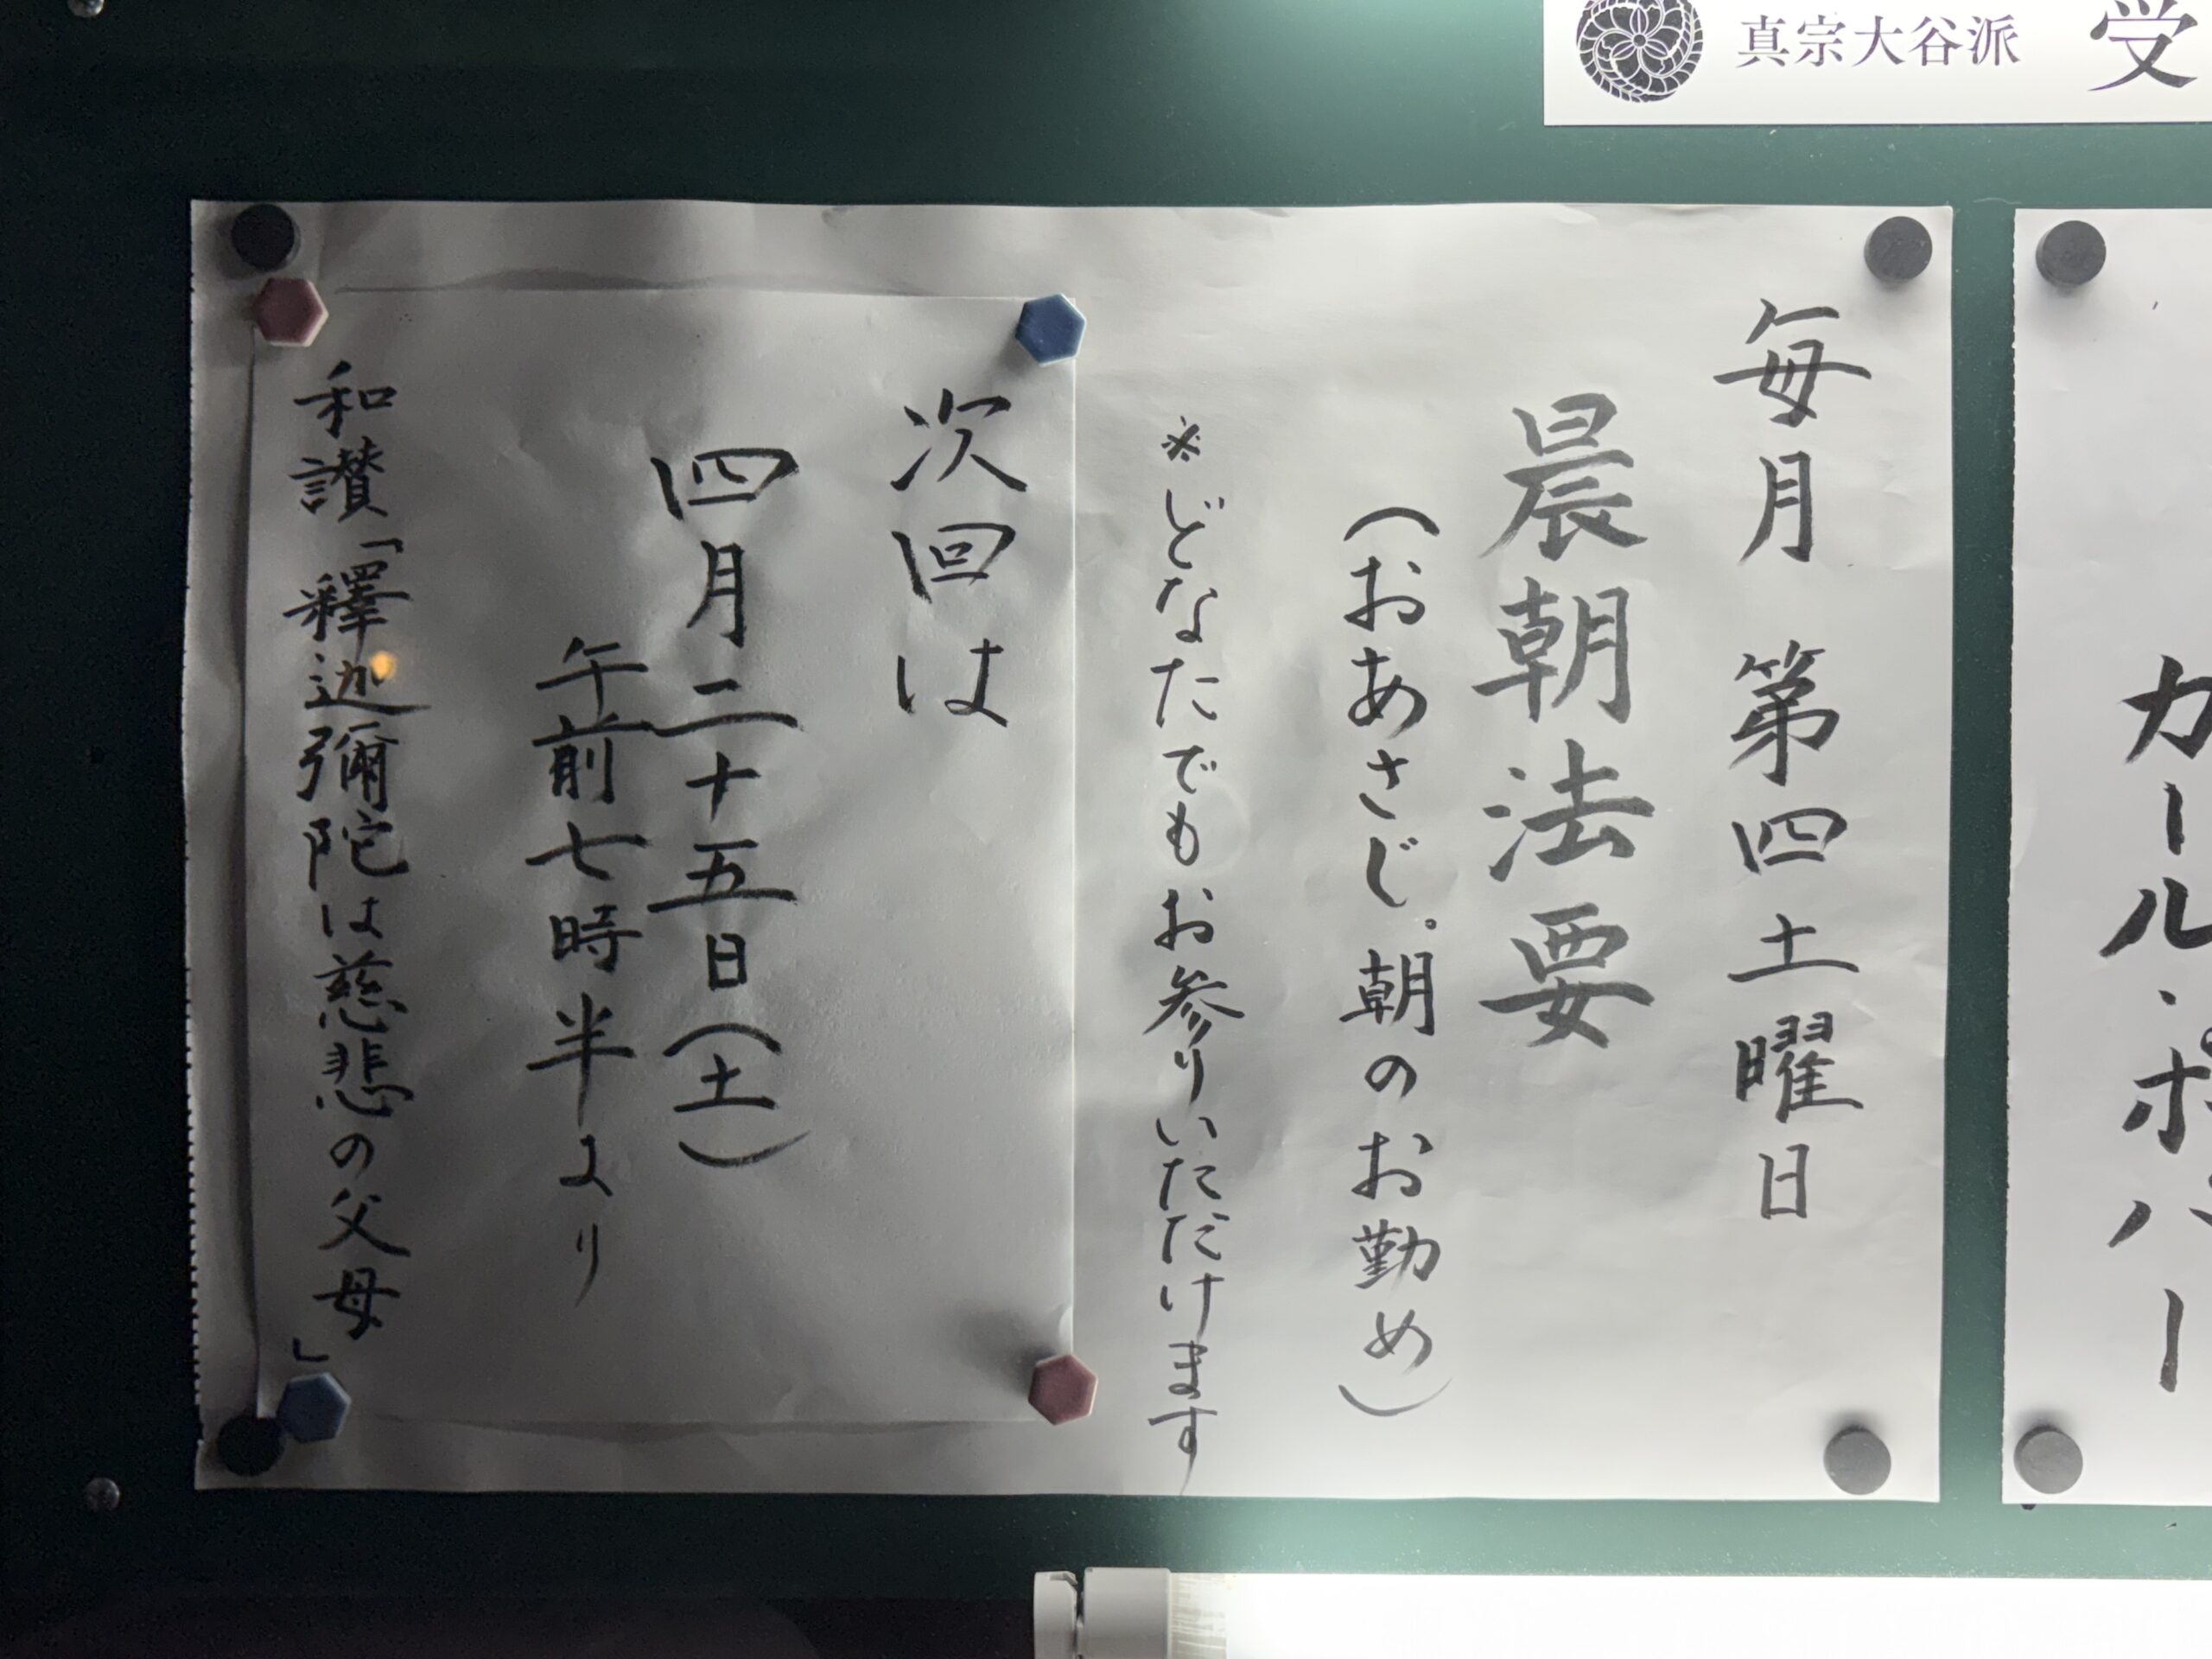 真宗大谷派 受
カール・ポパー
毎月 第四土曜日
晨朝法要
(おあさじ。朝のお勤め)
※どなたでもお参りいただけます
次回は
四月二十五日(土)
午前七時半より
和讃「釋迦彌陀は慈悲の父母」